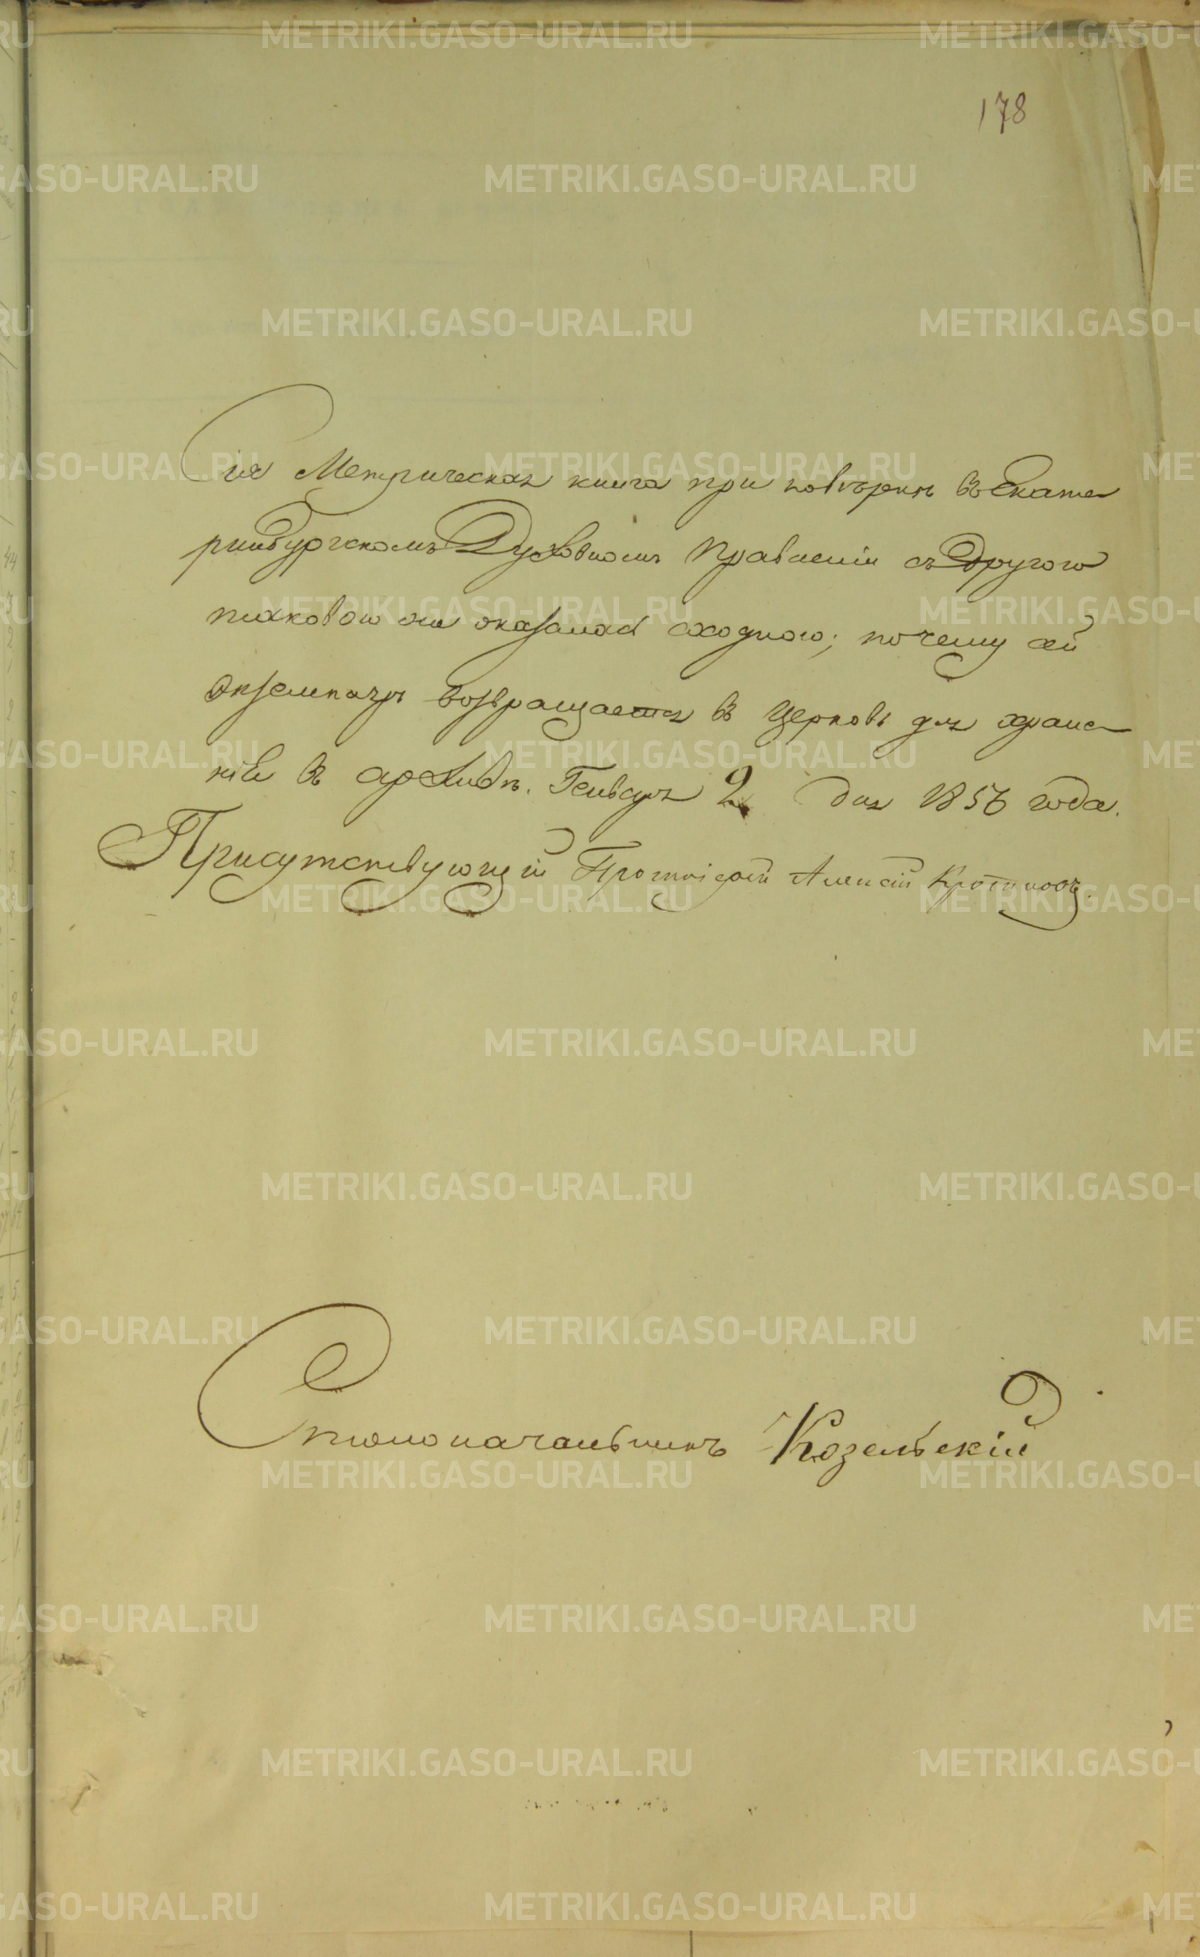 178
Сія Метрическая книга при повѣркѣ въ Екате
ринбургскомъ Духовномъ Правленіи съ другого
таковою же оказалась сходною; почему сей
экземпляръ возвращается въ церковь для хране
нія въ архивѣ. Генваря 2 дня 1856 года.
Присутствующій Протоіерей Алексій
Столоначальникъ Козельскій
METRIKI.GASO-URAL.RU